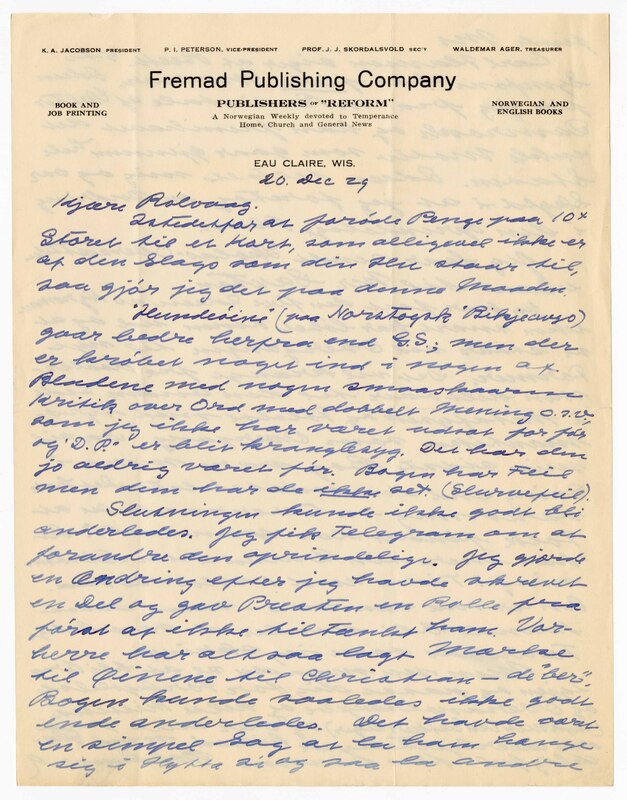 K. A. JACOBSON, PRESIDENT P. I. PETERSON, VICE-PRESIDENT PROF. J. J. SKORDALSVOLD SEC'Y WALDEMAR AGER, TREASURER
Fremad Publishing Company
BOOK AND JOB PRINTING
PUBLISHERS OF "REFORM"
NORWEGIAN AND ENGLISH BOOKS
A Norwegian Weekly devoted to Temperance
Home, Church and General News
EAU CLAIRE, WIS.
20. Dec 29
Kjære Rölvaag.
Istedetfor at forøde Penge paa 10¢
Storet til et Kort, som alligevel ikke er
af den Slags som din Hu staar til,
saa gjør jeg det paa denne Maaden.
"Hundeöine" (paa Norsk
gaar bedre herfra end G.S.; men der
er krøbet noget ind i nogen af
Bladene med nogen smaaskaarne
Kritik over Ord med dobbelt Mening o.s.v.,
som jeg ikke har været udsat for før
og "D.P." er blit kranglesyg. Det har den
jo aldrig været før. Bogen har Feil
men dem har de ikke set. (Slurvefeil).
Slutningen kunde ikke godt bli
anderledes. Jeg fik Telegram om at
forandre den oprindelige. Jeg gjorde
en Endring efter jeg havde skrevet
en Del og gav Presten en Rolle fra
først af ikke tiltænkt ham. Vor-
herre har altsaa lagt Mærke
til Öinene til Christian — de "ber".
Bogen kunde saaledes ikke godt
ende anderledes. Det havde været
en simpel Sag at la ham hænge
sig i Hytta si og saa la andre